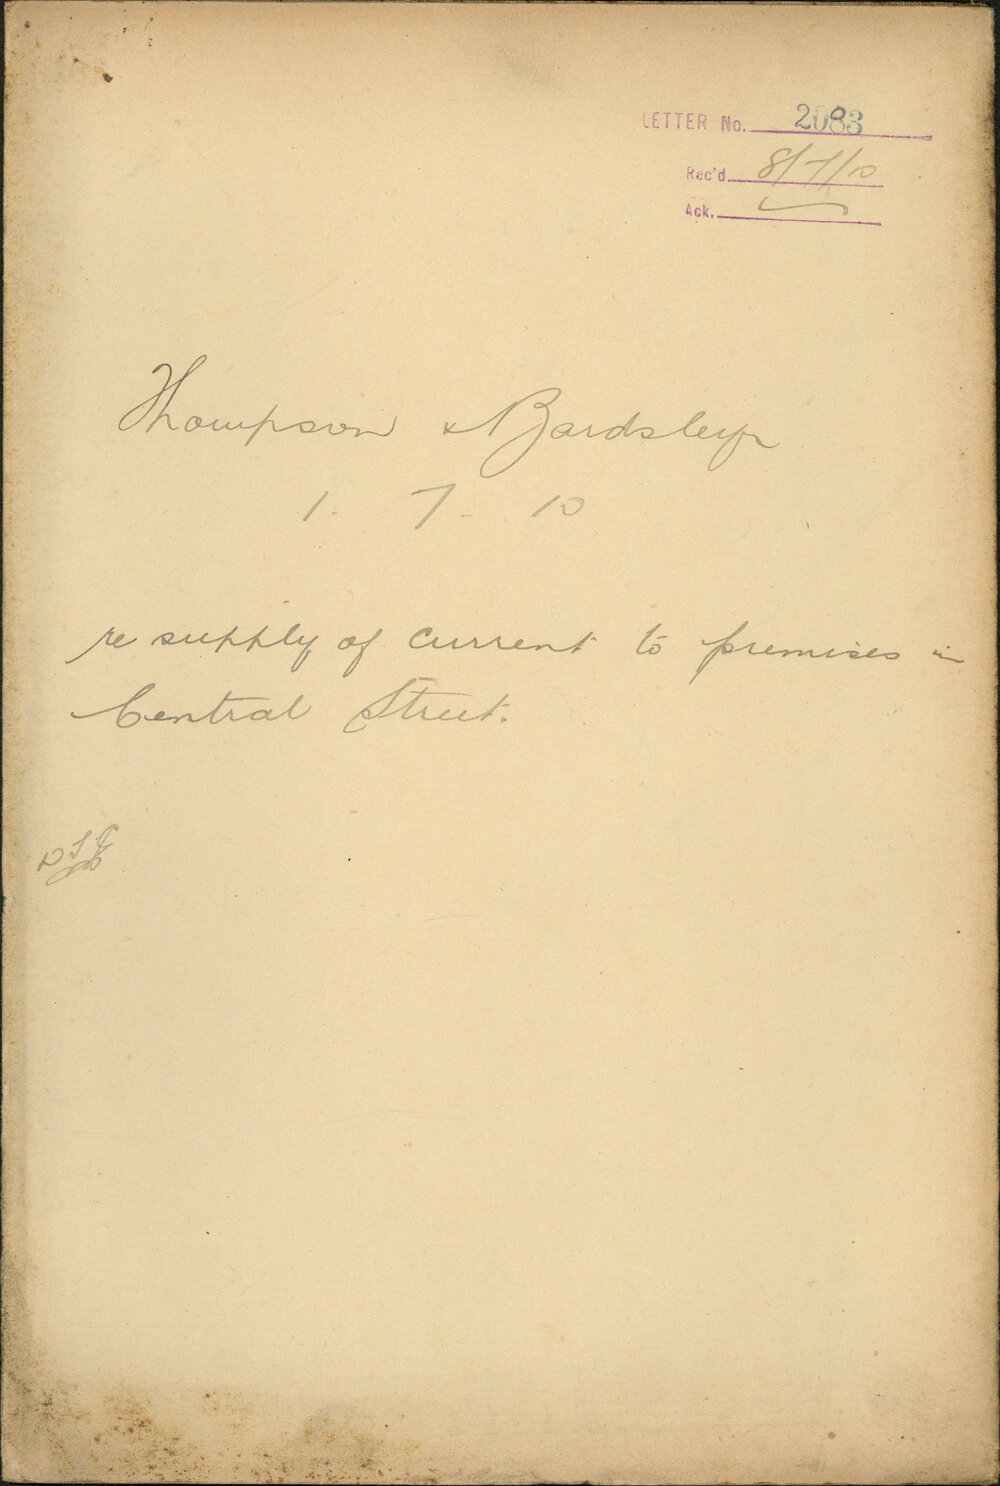 LETTER No. 2083
Rec'd 8/7/10
Ack.
Thompson & Bardsley
1 - 7 - 10
re supply of current to premises in
Central Street.